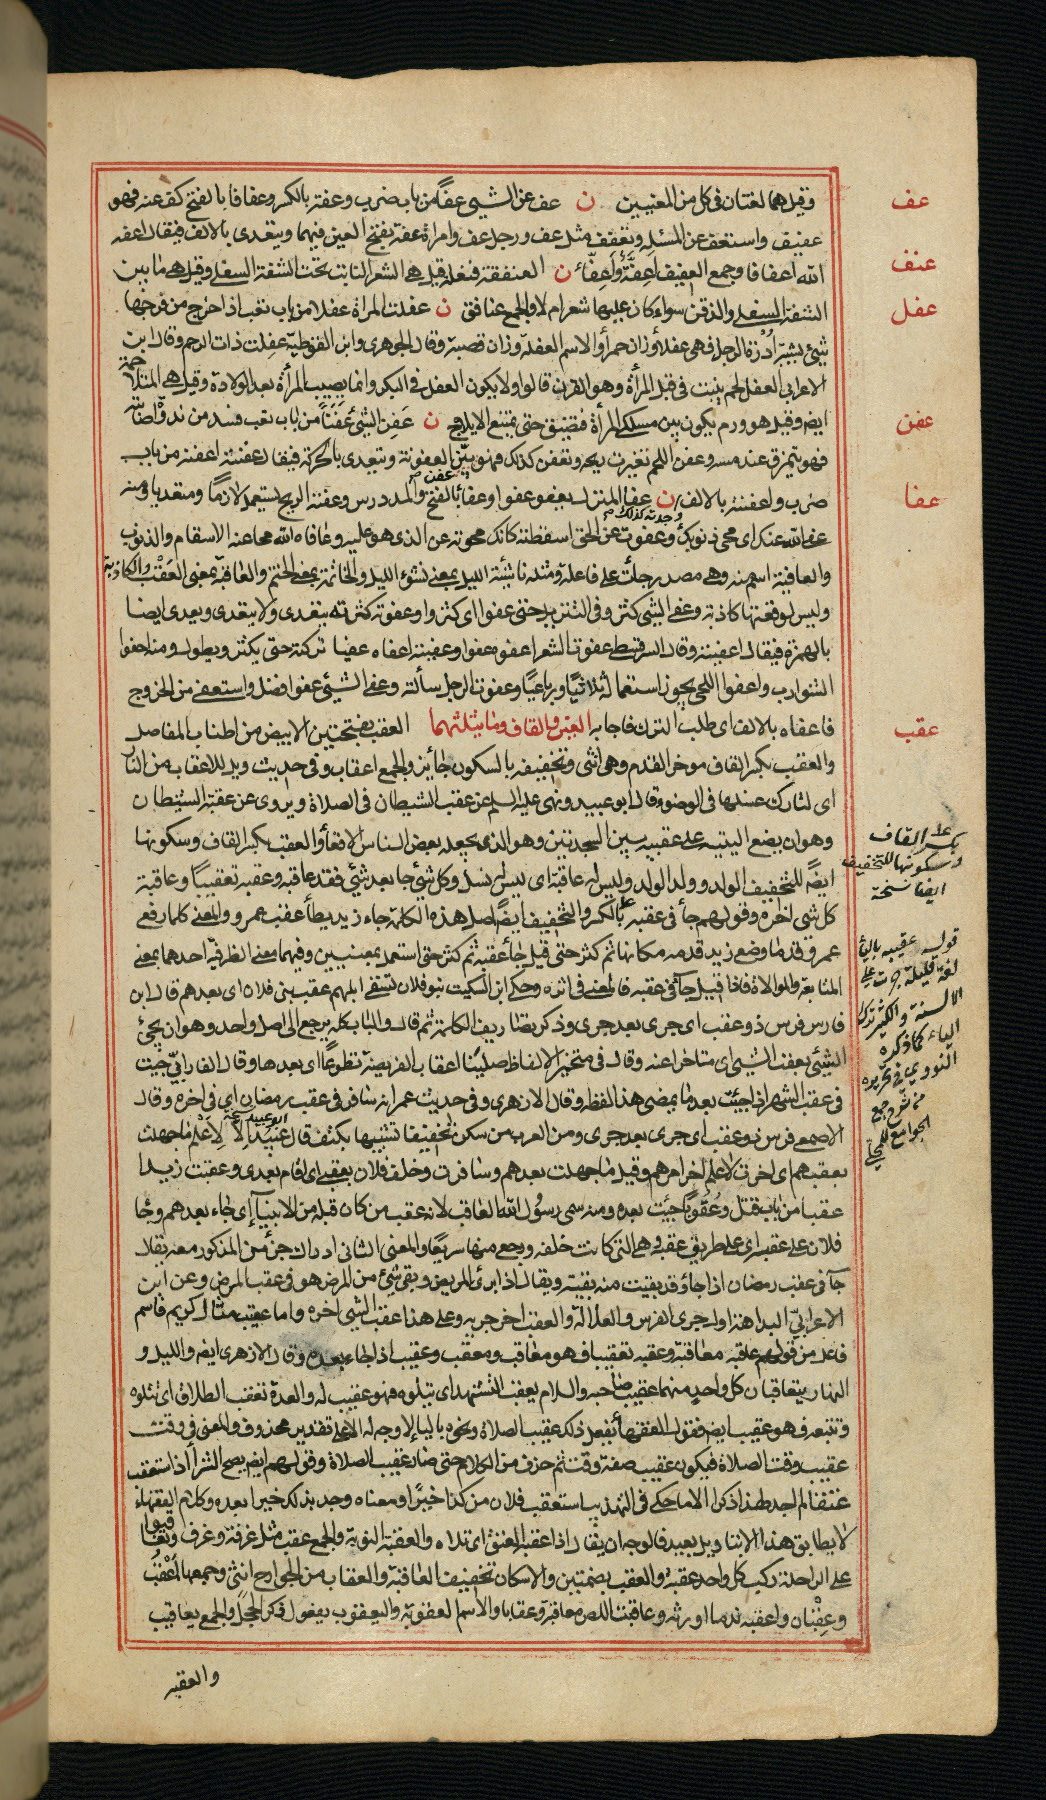 وقيل هما لغتان فى كل من المعنيين ن عف عن الشيئ عفا من باب ضرب وعفة بالكسر وعفافا بالفتح كف عنه فهو
عف
عفيف واستعف عن المسئلة وتعفف مثل عف ورجل عف وامراة عفة بفتح العين فيهما ويتعدى بالالف فيقال اعفه
الله اعفافا وجمع العفيف اعفة واعفاء ن العنفقة فنعلة قيل هى الشعر النابت تحت الشفة السفلى وقيل هى ما بين
عنف
الشفة السفلى والذقن سواء كان عليها شعر ام لا والجمع عنافق ن عفلت المراة عفلا من باب تعب اذا خرج من فرجها
عفل
شيئ يشبه ادرة الرجل فهى عفلاء وزان حمراء والاسم العفلة وزان قصبة وقال الجوهرى وابن القوطية عفلت ذات الرحم وقال ابن
الاعرابى العفل لحم ينبت فى قبل المرأة وهو القرن قالوا ولا يكون العفل فى البكر وانما يصيب المرأة بعد الولادة وقيل هى المتلاحمة
ايضا وقيل هو ورم يكون بين مسلكى المرأة فيضيق حتى يمتنع الايلاج ن عفن الشيئ عفنا من باب تعب فسد من ندوة اصابته
عفن
فهو يتمزق عند مسه وعفن اللحم تغيرت ريحه وتعفن كذلك فهو بين العفونة ويتعدى بالحركة فيقال عفنته اعفنه من باب
ضرب واعفنته بالالف وجدته كذلك ن عفا المنزل يعفو عفوا وعفاء بالفتح والمد درس وعفته الريح يستعمل لازما ومتعديا ومنه
عفا
عفا الله عنك اى محى ذنوبك وعفوت عن الحق اسقطته كانك محوته عن الذى هو عليه وعافاه الله محا عنه الاسقام والذنوب
والعافية اسم منه وهى مصدر جاءت على فاعلة ومثله ناشئة الليل بمعنى نشوء الليل والخاتمة بمعنى الختم والعاقبة بمعنى العقب والكاذبة
وليس لوقعتها كاذبة وعفا الشيئ كثر وفى التنزيل حتى عفوا اى كثروا وعفوته كثرته يتعدى ولا يتعدى ويعدى ايضا
بالهمزة فيقال اعفيته وقال السرقسطى عفوت الشعر اعفوه عفوا وعفيته اعفاه عفيا تركته حتى يكثر ويطول ومنه احفوا
الشوارب واعفوا اللحى يجوز استعماله ثلاثيا ورباعيا وعفوت الرجل سألته وعفى الشيئ عفوا فضل واستعفى من الخروج
فاعفاه بالالف اى طلب الترك فاجابه العين والقاف وما يثلثهما العقب بفتحتين الابيض من اطناب المفاصل
عقب
والعقب بكسر القاف مؤخر القدم وهى انثى وتخفيفه بالسكون جائز والجمع اعقاب وفى حديث ويل للاعقاب من النار
اى لتارك غسلها فى الوضوء قال ابو عبيد ونهى عليه السلام عن عقب الشيطان فى الصلاة ويروى عن عقبة الشيطان
وهو ان يضع اليتيه على عقبيه بين السجدتين وهو الذى يجعله بعض الناس الاقعاء والعقب بكسر القاف وسكونها
ايضا للتخفيف الولد وولد الولد وليس له عاقبة اى ليس له نسل وكل شيئ جاء بعد شيئ فقد عاقبه وعقبه تعقيبا وعاقبة
كل شى اخره وقولهم جاء فى عقبه بالكسر والتخفيف ايضا اصل هذه الكلمة جاء زيد يطأ عقب عمرو والمعنى كلما رفع
عمرو قدما وضع زيد قدمه مكانها ثم كثر حتى قيل جاء عقبه ثم كثر حتى استعمل بمعنيين وفيهما معنى الظرفية احدهما بمعنى
المتابعة والموالاة فاذا قيل جاء فى عقبه فالمعنى فى اثره وحكى ابن السكيت بنو فلان تسقى ابلهم عقب بنى فلان اى بعدهم قال ابن
فارس فرس ذو عقب اى جرى بعد جرى وذكر تصاريف الكلمة ثم قال والباب كله يرجع الى اصل واحد وهو ان يجئ
الشيئ بعقب الشيئ اى متاخرا عنه وقال فى متخير الالفاظ صلينا اعقاب الفريضة تطوعا اى بعدها وقال الفارابى جئت
فى عقب الشهر اذا جئت بعد ما يمضى هذا لفظه وقال الازهرى وفى حديث عمر انه سافر فى عقب رمضان اى فى اخره وقال
الاصمعى فرس ذو عقب اى جرى بعد جرى ومن العرب من سكن تخفيفا
بعقبهم اى اخرت لاعلم اخر امرهم وقيل ما جهلت بعدهم وسافرت وخلف فلان بعقبى اى اقام بعدى وعقبت زيدا
عقبا من باب قتل وعقوبا جئت بعده ومنه سمى رسول الله العاقب لانه عقب من كان قبله من الانبياء اى جاء بعدهم وجاء
فلان على عقبه اى على طريق عقبه وهى التى كانت خلفه ورجع منها سريعا والمعنى الثانى ادراك جزء من المذكور معه يقال
جاء فى عقب رمضان اذا جاء وقد بقيت منه بقية ويقال اذا برئ المريض وبقى شيئ من المرض هو فى عقب المرض وعن ابن
الاعرابى البداهة اول جرى الفرس والعلالة والعقب اخر جريه وعلى هذا عقب الشيئ اخره واما عقيب مثال كريم فاسم
فاعل من قولهم عاقبه معاقبة وعقبه تعقيبا فهو معاقب ومعقب وعقيب اذا جاء بعده وقال الازهرى ايضا والليل و
النهار يتعاقبان كل واحد منهما عقيب صاحبه والسلام يعقب التشهد اى يتلوه فهو عقيب له والعدة تعقب الطلاق اى تتلوه
وتتبعه فهو عقيب ايضا فقول الفقهاء يفعل ذلك عقيب الصلاة ونحوه بالياء لا وجه له الا على تقدير محذوف والمعنى فى وقت
عقيب وقت الصلاة فيكون عقيب صفة وقت ثم حذف من الكلام حتى صار عقيب الصلاة وقولهم ايضا يصح الشراء اذا استعقب
عتقا لم اجد لهذا ذكرا الا ما حكى فى التهذيب استعقب فلان من كذا خيرا ومعناه وجد بذلك خيرا بعده وكلام الفقهاء
لا يطابق هذا الا بتاويل بعيد فالوجه ان يقال اذا عقبه العتق اى تلاه والعقبة النوبة والجمع عقب مثل غرفة وغرف وتعاقبوا
على الراحلة ركب كل واحد عقبة والعقب بضمتين والاسكان تخفيف العاقبة والعقاب من الجوارح انثى وجمعها اعقب
وعقبان واعقبه ندما اورثه وعاقبت اللص معاقبة وعقابا والاسم العقوبة واليعقوب يفعول ذكر الحجل والجمع يعاقيب
والعقبة
بكسر القاف
وسكونها للتخفيف
ايضا نسخة
قوله عقيبه بالياء
لغة قليلة جرت على
الالسنة والكثير ترك
الياء كما ذكره
النووى فى تحريره
الجوامع للمحلى